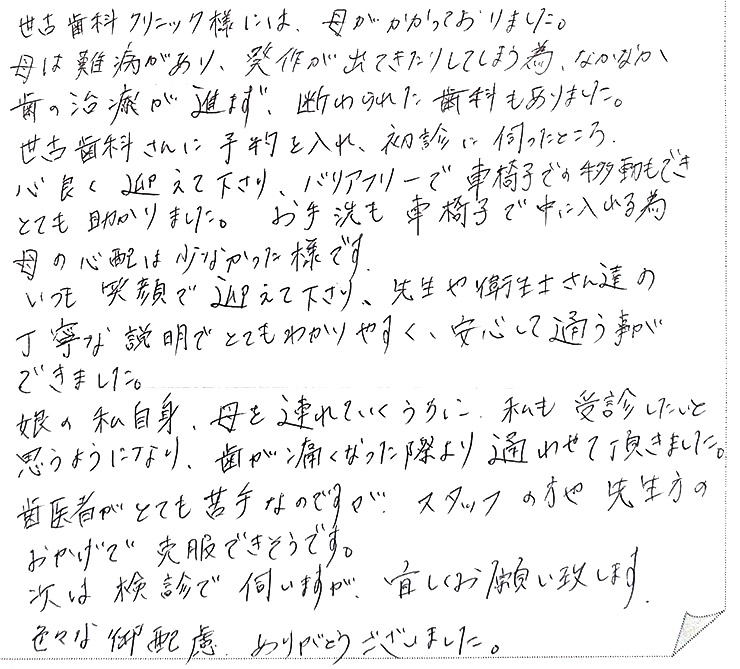 世古歯科クリニック様には、母がかかっておりました。
母は難病があり、発作が出てきたりしてしまう為、なかなか
歯の治療が進まず、断わられた歯科もありました。
世古歯科さんに予約を入れ、初診に伺ったところ、
心良く迎えて下さり、バリアフリーで車椅子での移動もでき
とても助かりました。お手洗も車椅子で中に入れる為
母の心配は少なかった様です。
いつも笑顔で迎えて下さり、先生や衛生士さん達の
丁寧な説明でとてもわかりやすく、安心して通う事が
できました。
娘の私自身、母を連れていくうちに、私も受診したいと
思うようになり、歯が痛くなった際より通わせて頂きました。
歯医者がとても苦手なのですが、スタッフの方や先生方の
おかげで克服できそうです。
次は検診で伺いますが、宜しくお願い致します。
色々な御配慮、ありがとうございました。